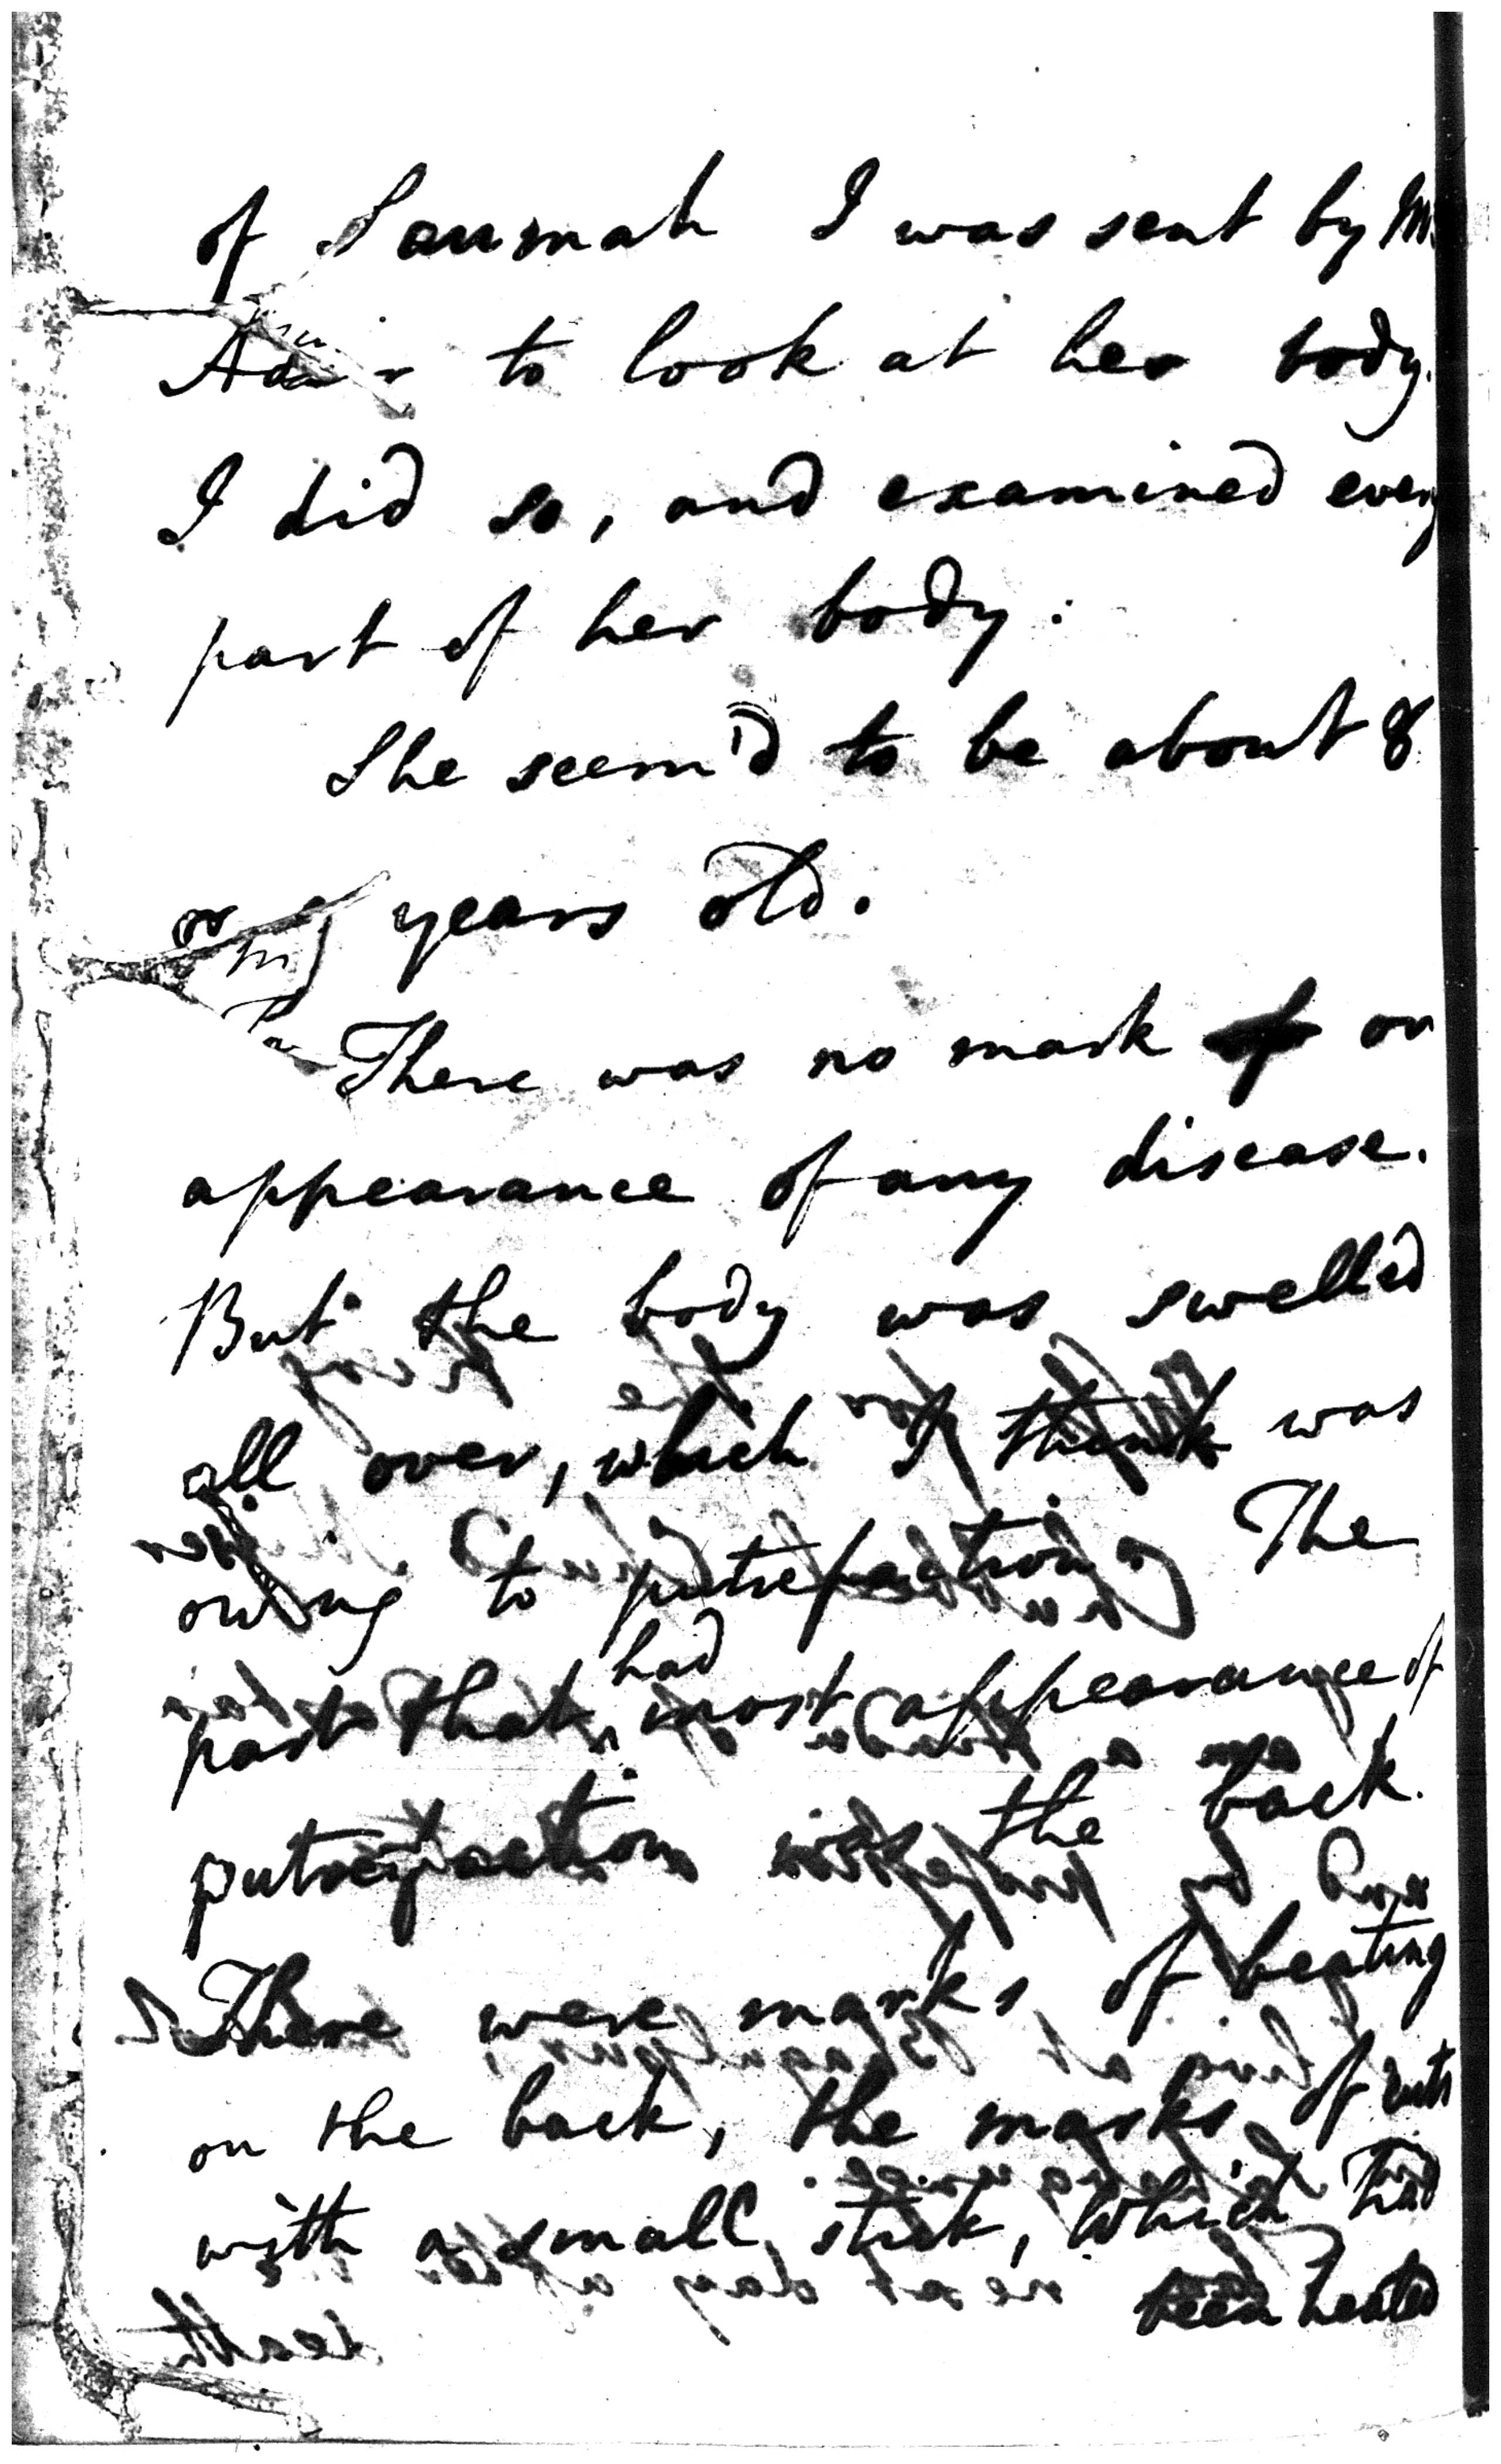 of Saumah I was sent by Mr
Adair to look at her body.
I did so, and examined every
part of her body:
She seem'd to be about 8
or 9 years old.
There was no mark of or
appearance of any disease.
But the body was swelled
all over, which I think was
owing to putrefaction. The
part that had most appearance of
putrefaction was the back.
There were marks of beating
on the back, the marks of cuts
with a small stick, which had
been heated